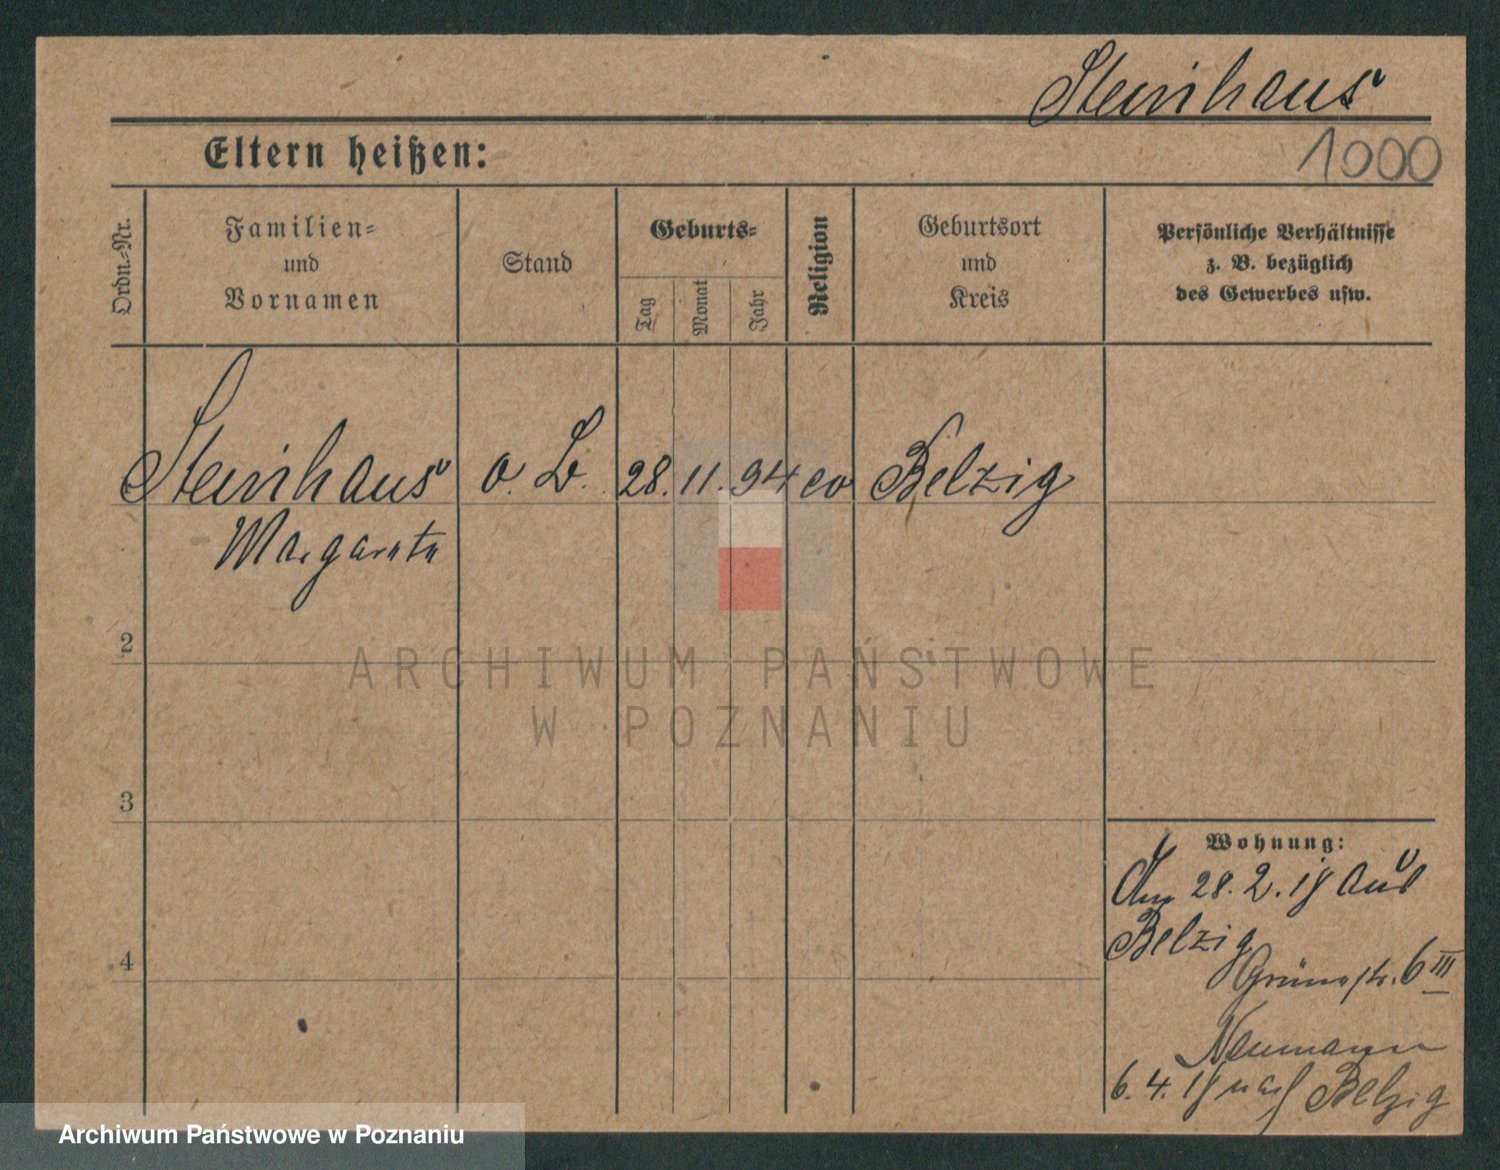 Steinhaus
Eltern heißen:
1000
Ordn.-Nr.
Familien-
und
Vornamen
Stand
Geburts-
Tag
Monat
Jahr
Religion
Geburtsort
und
Kreis
Persönliche Verhältnisse
z. B. bezüglich
des Gewerbes usw.
Steinhaus o. B. 28. 11. 94 ev Belzig
Margarete
2
3
4
Wohnung:
Am 28. 2. 18 aus
Belzig
Grünestr. 6 III
Neumann
6. 4. 18 nach Belzig
ARCHIWUM PAŃSTWOWE
W POZNANIU
Archiwum Państwowe w Poznaniu